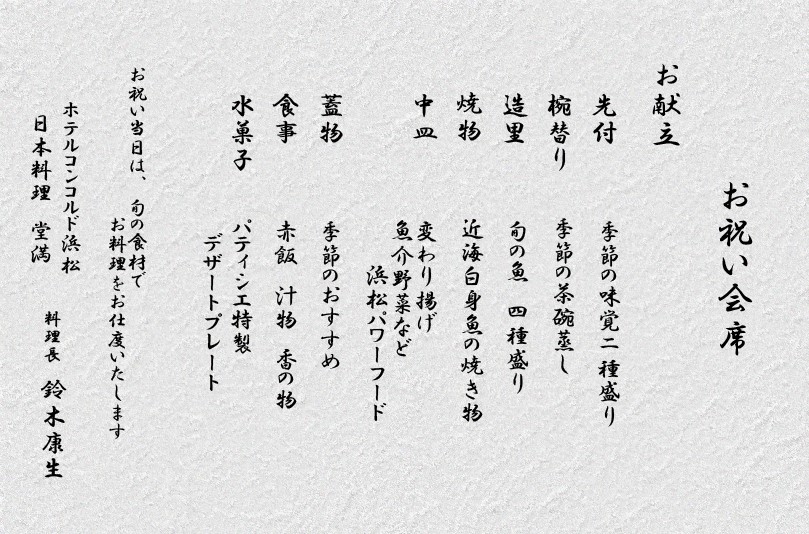 お祝い会席
お献立
先付 季節の味覚二種盛り
椀替り 季節の茶碗蒸し
造里 旬の魚 四種盛り
焼物 近海白身魚の焼き物
中皿 変わり揚げ
魚介野菜など
浜松パワーフード
蓋物 季節のおすすめ
食事 赤飯 汁物 香の物
水菓子 パティシエ特製
デザートプレート
お祝い当日は、旬の食材で
お料理をお仕度いたします
ホテルコンコルド浜松
日本料理 堂満 料理長 鈴木康生